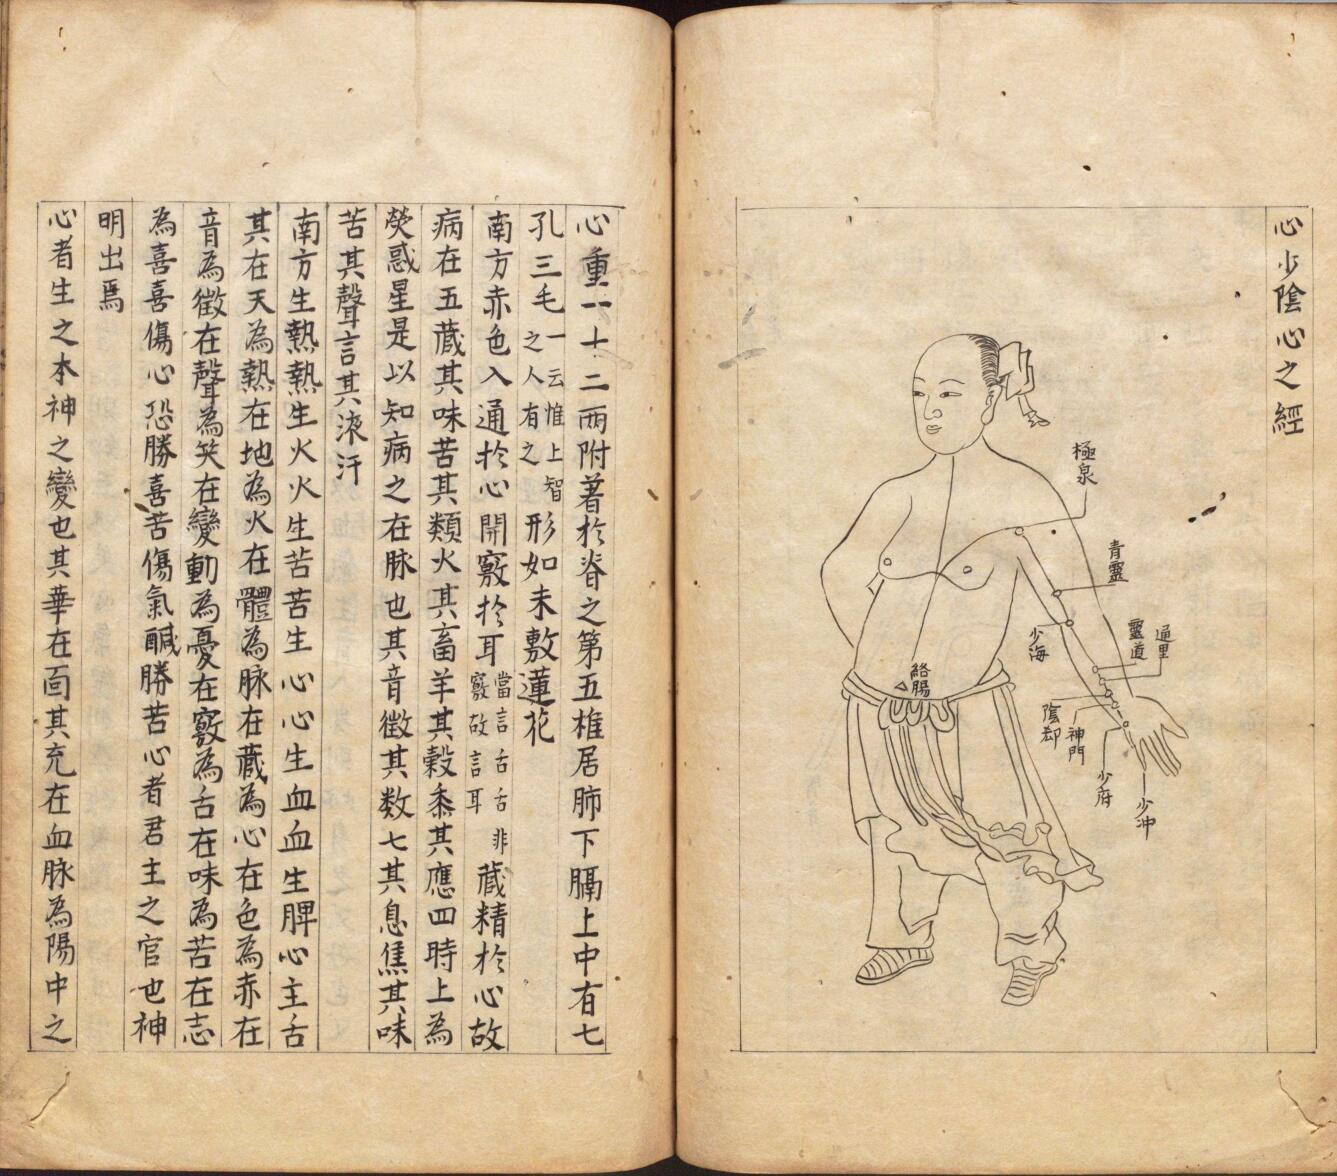 心少陰心之經
極泉
青靈
少海
靈道
通里
陰却
神門
少府
少冲
絡腸
心重一十二兩附著於脊之第五椎居肺下膈上中有七
孔三毛一云惟上智之人有之形如未敷蓮花
南方赤色入通於心開竅於耳當言舌舌非竅故言耳藏精於心故
病在五藏其味苦其類火其畜羊其穀黍其應四時上為
熒惑星是以知病之在脉也其音徵其数七其息焦其味
苦其聲言其液汗
南方生熱熱生火火生苦苦生心心生血血生脾心主舌
其在天為熱在地為火在體為脉在藏為心在色為赤在
音為徵在聲為笑在變動為憂在竅為舌在味為苦在志
為喜喜傷心恐勝喜苦傷氣鹹勝苦心者君主之官也神
明出焉
心者生之本神之變也其華在面其充在血脉為陽中之